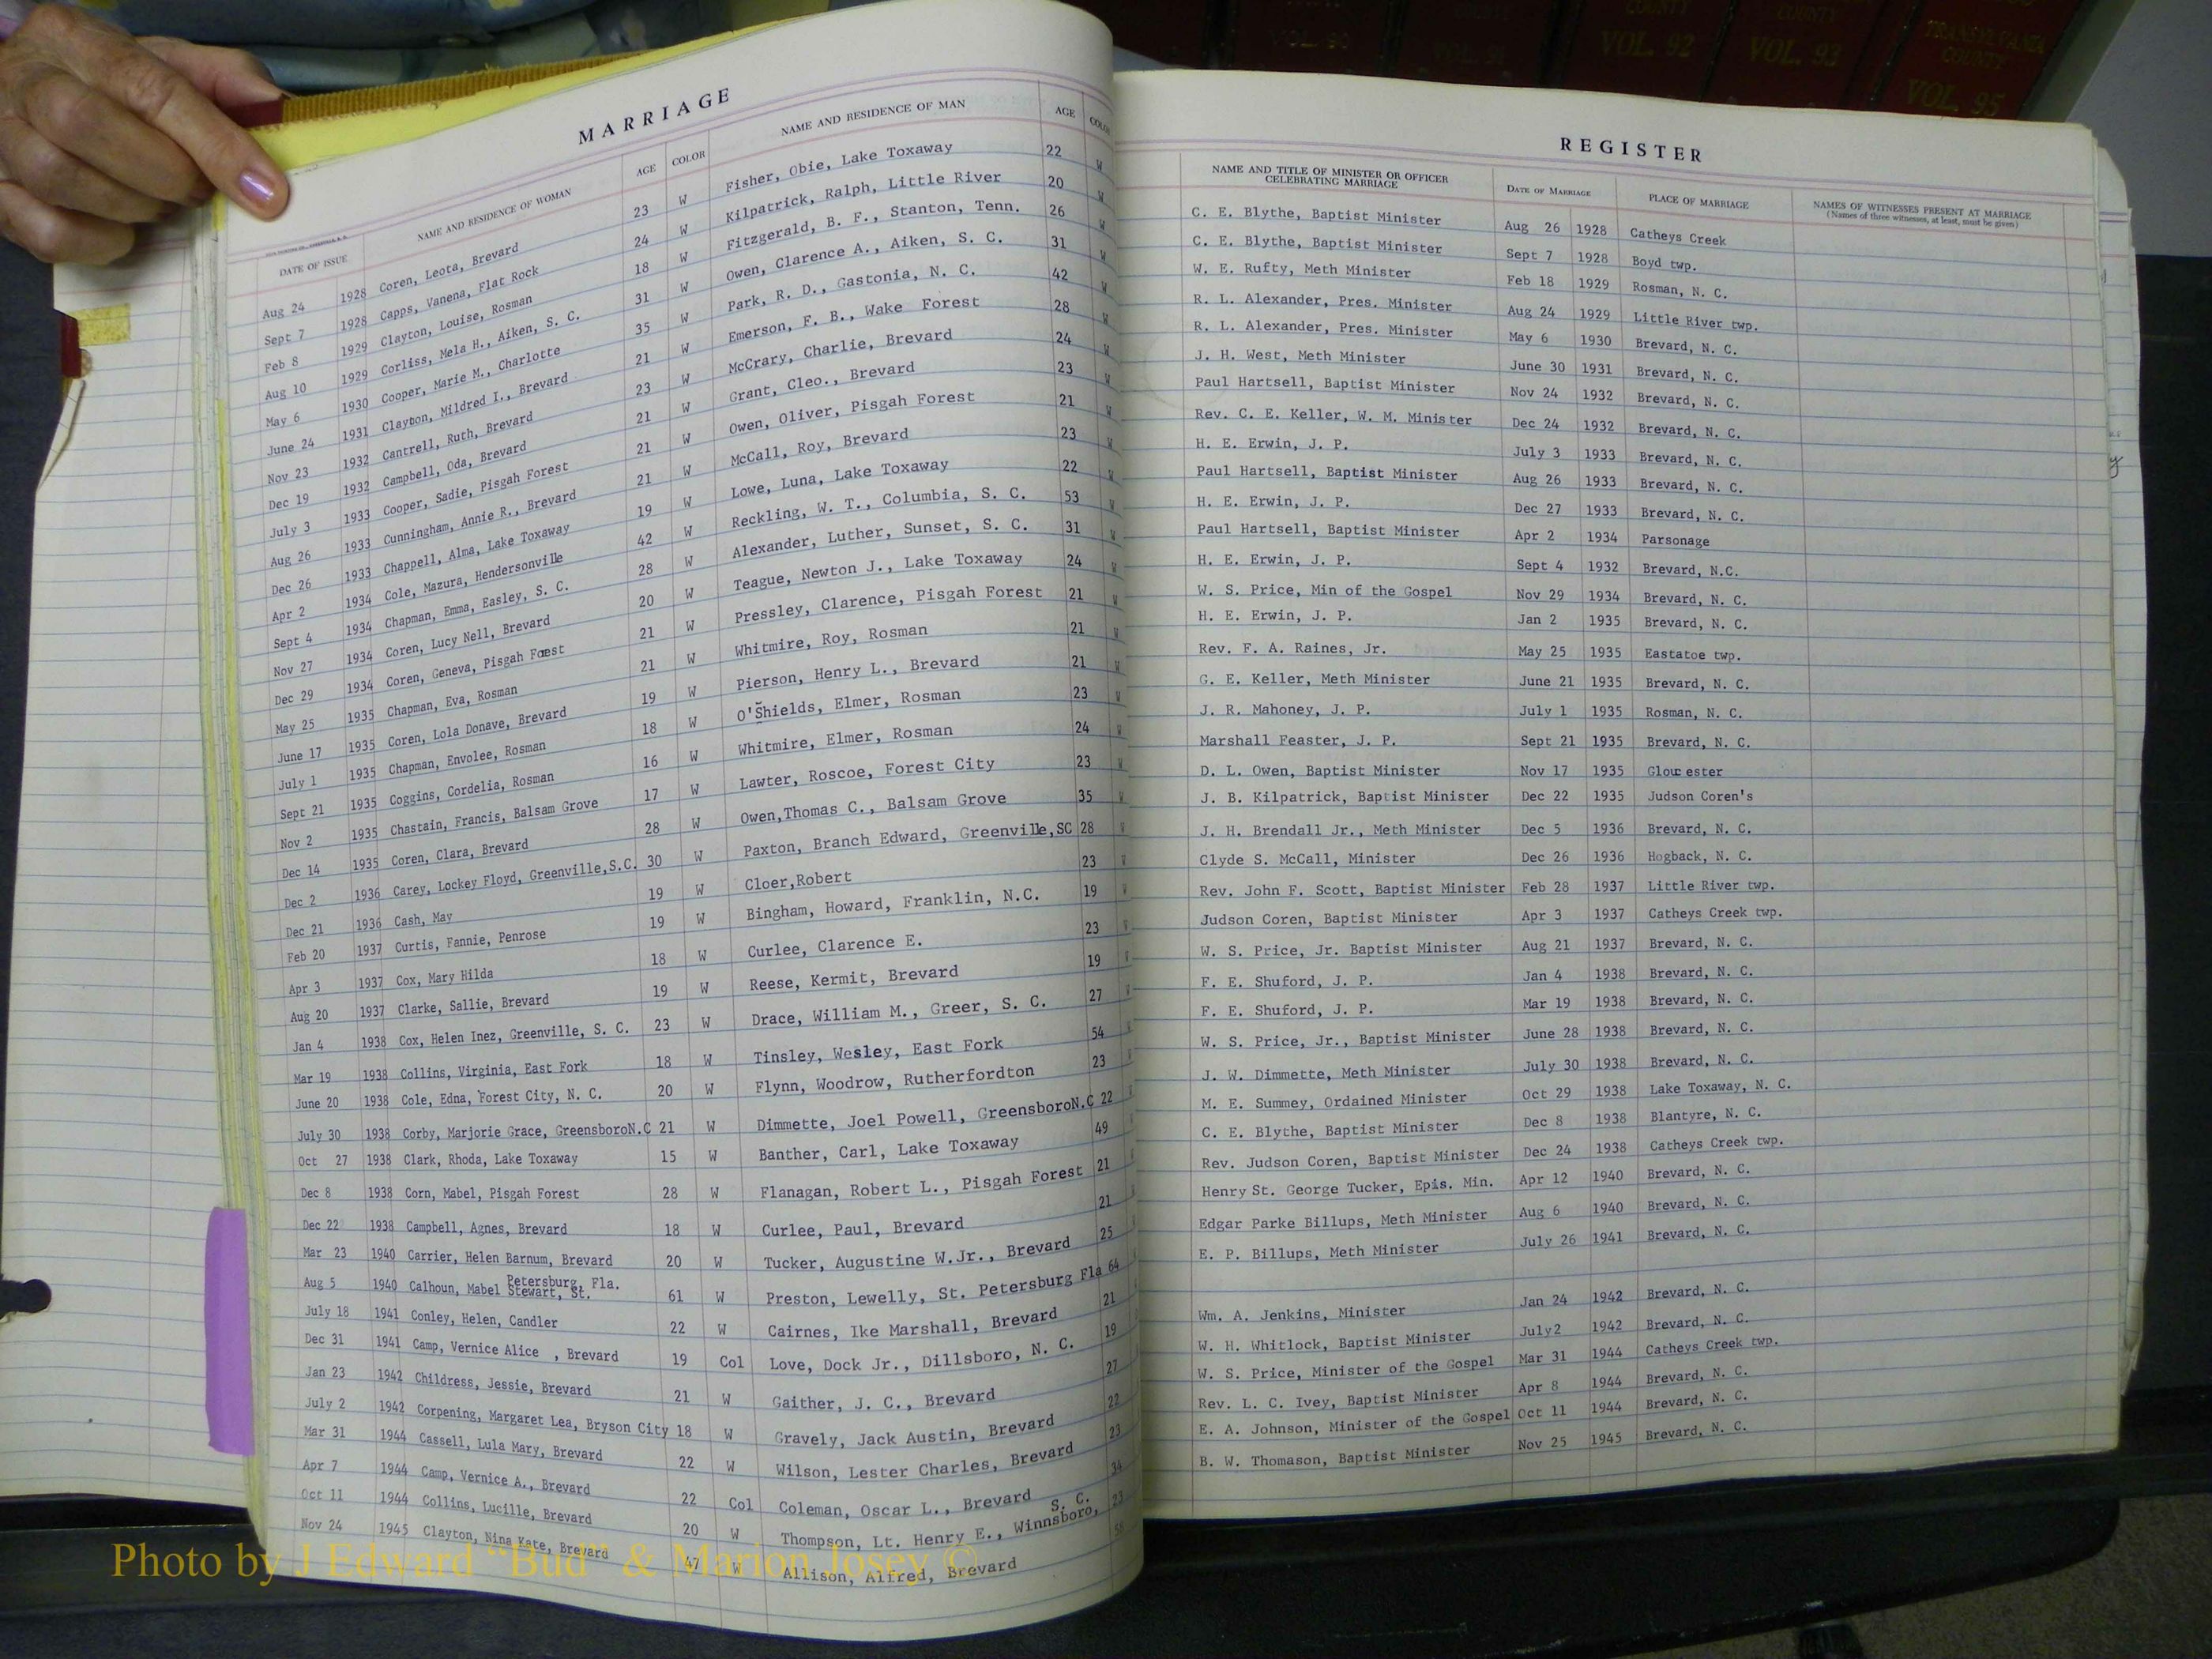 MARRIAGE
DATE OF ISSUE NAME AND RESIDENCE OF WOMAN AGE COLOR NAME AND RESIDENCE OF MAN AGE COLOR
Aug 24 1928 Coren, Leota, Brevard 23 W Fisher, Obie, Lake Toxaway 22 W
Sept 7 1928 Capps, Vanena, Flat Rock 24 W Kilpatrick, Ralph, Little River 20 W
Feb 8 1929 Clayton, Louise, Rosman 18 W Fitzgerald, B. F., Stanton, Tenn. 26 W
Aug 10 1929 Corliss, Mela H., Aiken, S. C. 31 W Owen, Clarence A., Aiken, S. C. 31 W
May 6 1930 Cooper, Marie M., Charlotte 35 W Park, R. D., Gastonia, N. C. 42 W
June 24 1931 Clayton, Mildred I., Brevard 21 W Emerson, F. B., Wake Forest 28 W
Nov 23 1932 Cantrell, Ruth, Brevard 23 W McCrary, Charlie, Brevard 24 W
Dec 19 1932 Campbell, Oda, Brevard 21 W Grant, Cleo., Brevard 23 W
July 3 1933 Cooper, Sadie, Pisgah Forest 21 W Owen, Oliver, Pisgah Forest 21 W
Aug 26 1933 Cunningham, Annie R., Brevard 21 W McCall, Roy, Brevard 23 W
Dec 26 1933 Chappell, Alma, Lake Toxaway 19 W Lowe, Luna, Lake Toxaway 22 W
Apr 2 1934 Cole, Mazura, Hendersonville 42 W Reckling, W. T., Columbia, S. C. 53 W
Sept 4 1934 Chapman, Emma, Easley, S. C. 28 W Alexander, Luther, Sunset, S. C. 31 W
Nov 27 1934 Coren, Lucy Nell, Brevard 20 W Teague, Newton J., Lake Toxaway 24 W
Dec 29 1934 Coren, Geneva, Pisgah Forest 21 W Pressley, Clarence, Pisgah Forest 21 W
May 25 1935 Chapman, Eva, Rosman 21 W Whitmire, Roy, Rosman 21 W
June 17 1935 Coren, Lola Donave, Brevard 19 W Pierson, Henry L., Brevard 21 W
July 1 1935 Chapman, Envolee, Rosman 18 W O'Shields, Elmer, Rosman 23 W
Sept 21 1935 Coggins, Cordelia, Rosman 16 W Whitmire, Elmer, Rosman 24 W
Nov 2 1935 Chastain, Francis, Balsam Grove 17 W Lawter, Roscoe, Forest City 23 W
Dec 14 1935 Coren, Clara, Brevard 28 W Owen,Thomas C., Balsam Grove 35 W
Dec 2 1936 Carey, Lockey Floyd, Greenville,S.C. 30 W Paxton, Branch Edward, Greenville,SC 28 W
Dec 21 1936 Cash, May 19 W Cloer,Robert 23 W
Feb 20 1937 Curtis, Fannie, Penrose 19 W Bingham, Howard, Franklin, N.C. 19 W
Apr 3 1937 Cox, Mary Hilda 18 W Curlee, Clarence E. 23 W
Aug 20 1937 Clarke, Sallie, Brevard 19 W Reese, Kermit, Brevard 19 W
Jan 4 1938 Cox, Helen Inez, Greenville, S. C. 23 W Drace, William M., Greer, S. C. 27 W
Mar 19 1938 Collins, Virginia, East Fork 18 W Tinsley, Wesley, East Fork 54 W
June 20 1938 Cole, Edna, Forest City, N. C. 20 W Flynn, Woodrow, Rutherfordton 23 W
July 30 1938 Corby, Marjorie Grace, GreensboroN.C 21 W Dimmette, Joel Powell, GreensboroN.C 22 W
Oct 27 1938 Clark, Rhoda, Lake Toxaway 15 W Banther, Carl, Lake Toxaway 49
Dec 8 1938 Corn, Mabel, Pisgah Forest 28 W Flanagan, Robert L., Pisgah Forest 21
Dec 22 1938 Campbell, Agnes, Brevard 18 W Curlee, Paul, Brevard 21
Mar 23 1940 Carrier, Helen Barnum, Brevard 20 W Tucker, Augustine W.Jr., Brevard 25
Aug 5 1940 Calhoun, Mabel Stewart, St. Petersburg, Fla. 61 W Preston, Lewelly, St. Petersburg Fla 64
July 18 1941 Conley, Helen, Candler 22 W Cairnes, Ike Marshall, Brevard 21
Dec 31 1941 Camp, Vernice Alice , Brevard 19 Col Love, Dock Jr., Dillsboro, N. C. 19
Jan 23 1942 Childress, Jessie, Brevard 21 W Gaither, J. C., Brevard 27
July 2 1942 Corpening, Margaret Lea, Bryson City 18 W Gravely, Jack Austin, Brevard 22
Mar 31 1944 Cassell, Lula Mary, Brevard 22 W Wilson, Lester Charles, Brevard 23
Apr 7 1944 Camp, Vernice A., Brevard 22 Col Coleman, Oscar L., Brevard 34
Oct 11 1944 Collins, Lucille, Brevard 20 W Thompson, Lt. Henry E., Winnsboro, S. C. 23
Nov 24 1945 Clayton, Nina Kate, Brevard 47 W Allison, Alfred, Brevard
REGISTER
NAME AND TITLE OF MINISTER OR OFFICER CELEBRATING MARRIAGE DATE OF MARRIAGE PLACE OF MARRIAGE NAMES OF WITNESSES PRESENT AT MARRIAGE
(Names of three witnesses, at least, must be given)
C. E. Blythe, Baptist Minister Aug 26 1928 Catheys Creek
C. E. Blythe, Baptist Minister Sept 7 1928 Boyd twp.
W. E. Rufty, Meth Minister Feb 18 1929 Rosman, N. C.
R. L. Alexander, Pres. Minister Aug 24 1929 Little River twp.
R. L. Alexander, Pres. Minister May 6 1930 Brevard, N. C.
J. H. West, Meth Minister June 30 1931 Brevard, N. C.
Paul Hartsell, Baptist Minister Nov 24 1932 Brevard, N. C.
Rev. C. E. Keller, W. M. Minister Dec 24 1932 Brevard, N. C.
H. E. Erwin, J. P. July 3 1933 Brevard, N. C.
Paul Hartsell, Baptist Minister Aug 26 1933 Brevard, N. C.
H. E. Erwin, J. P. Dec 27 1933 Brevard, N. C.
Paul Hartsell, Baptist Minister Apr 2 1934 Parsonage
H. E. Erwin, J. P. Sept 4 1932 Brevard, N.C.
W. S. Price, Min of the Gospel Nov 29 1934 Brevard, N. C.
H. E. Erwin, J. P. Jan 2 1935 Brevard, N. C.
Rev. F. A. Raines, Jr. May 25 1935 Eastatoe twp.
G. E. Keller, Meth Minister June 21 1935 Brevard, N. C.
J. R. Mahoney, J. P. July 1 1935 Rosman, N. C.
Marshall Feaster, J. P. Sept 21 1935 Brevard, N. C.
D. L. Owen, Baptist Minister Nov 17 1935 Gloucester
J. B. Kilpatrick, Baptist Minister Dec 22 1935 Judson Coren's
J. H. Brendall Jr., Meth Minister Dec 5 1936 Brevard, N. C.
Clyde S. McCall, Minister Dec 26 1936 Hogback, N. C.
Rev. John F. Scott, Baptist Minister Feb 28 1937 Little River twp.
Judson Coren, Baptist Minister Apr 3 1937 Catheys Creek twp.
W. S. Price, Jr. Baptist Minister Aug 21 1937 Brevard, N. C.
F. E. Shuford, J. P. Jan 4 1938 Brevard, N. C.
F. E. Shuford, J. P. Mar 19 1938 Brevard, N. C.
W. S. Price, Jr., Baptist Minister June 28 1938 Brevard, N. C.
J. W. Dimmette, Meth Minister July 30 1938 Brevard, N. C.
M. E. Summey, Ordained Minister Oct 29 1938 Lake Toxaway, N. C.
C. E. Blythe, Baptist Minister Dec 8 1938 Blantyre, N. C.
Rev. Judson Coren, Baptist Minister Dec 24 1938 Catheys Creek twp.
Henry St. George Tucker, Epis. Min. Apr 12 1940 Brevard, N. C.
Edgar Parke Billups, Meth Minister Aug 6 1940 Brevard, N. C.
E. P. Billups, Meth Minister July 26 1941 Brevard, N. C.
Wm. A. Jenkins, Minister Jan 24 1942 Brevard, N. C.
W. H. Whitlock, Baptist Minister July2 1942 Brevard, N. C.
W. S. Price, Minister of the Gospel Mar 31 1944 Catheys Creek twp.
Rev. L. C. Ivey, Baptist Minister Apr 8 1944 Brevard, N. C.
E. A. Johnson, Minister of the Gospel Oct 11 1944 Brevard, N. C.
B. W. Thomason, Baptist Minister Nov 25 1945 Brevard, N. C.
COUNTY VOL. 92
COUNTY VOL. 93
TRANSYLVANIA COUNTY VOL. 95
Photo by J Edward “Bud” & Marion Josey ©